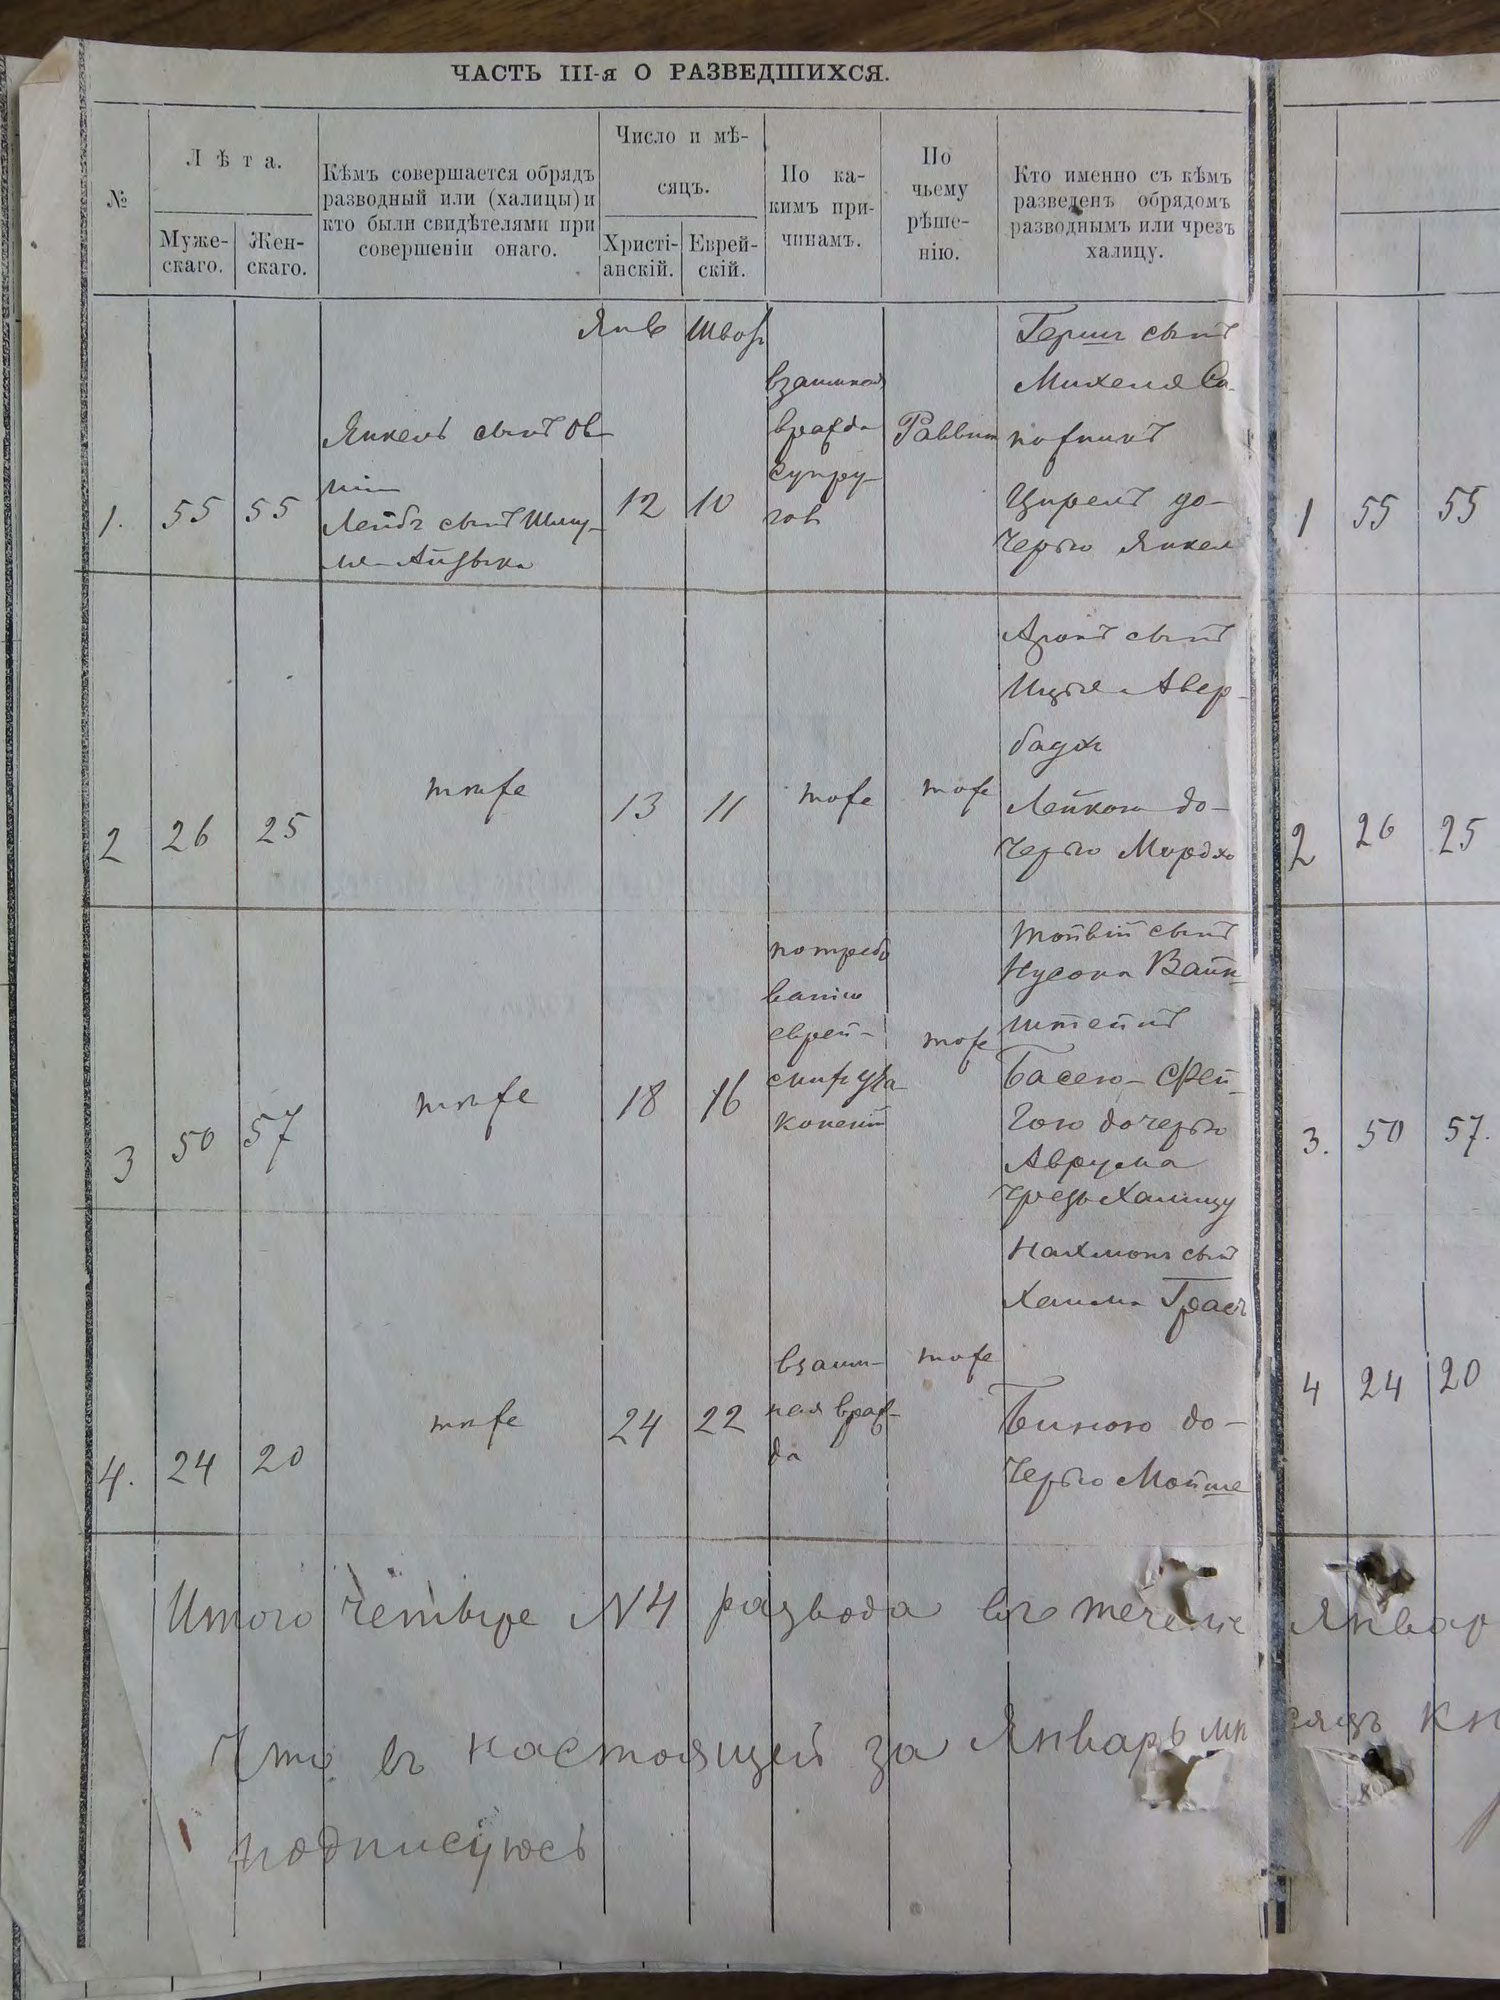 ЧАСТЬ III-я О РАЗВЕДШИХСЯ.
№
Лѣта.
Муже-
скаго.
Жен-
скаго.
Кѣмъ совершается обрядъ
разводный или (халицы) и
кто были свидѣтелями при
совершеніи онаго.
Число и мѣ-
сяцъ.
Христі-
анскій.
Еврей-
скій.
По ка-
кимъ при-
чинамъ.
По
чьему
рѣше-
нію.
Кто именно съ кѣмъ
разведенъ обрядомъ
разводнымъ или чрезъ
халицу.
Янв
Шват
1.
55
55
Янкель сынъ
Лейбъ сынъ Шму-
ля
12
10
взаимная
вражда
супру-
говъ
Раввин
Герш сынъ
Михеля Са-
пожникъ
Цирелъ до-
черью Янкел
2
26
25
тоже
13
11
тоже
тоже
Аронъ сынъ
Ицыя Авер-
бахъ
Лейкою до-
черью Мордхо
3
50
57
тоже
18
16
по требо
ванію
еврей-
скихъ за
коновъ
тоже
Тойвій сынъ
Нусона Вайн-
штейнъ
Басею-Фей-
гою дочерью
Аврума
чрезъ Халицу
4.
24
20
тоже
24
22
взаим-
ная враж-
да
тоже
Нахмонъ сынъ
Хаима
Биною до-
черью Мойше
Итого четыре №4 развода въ течение Январ
Что въ настоящей за Январь мѣсяцъ кн
подписуюсь
1
55
55
2
26
25
3.
50
57.
4
24
20